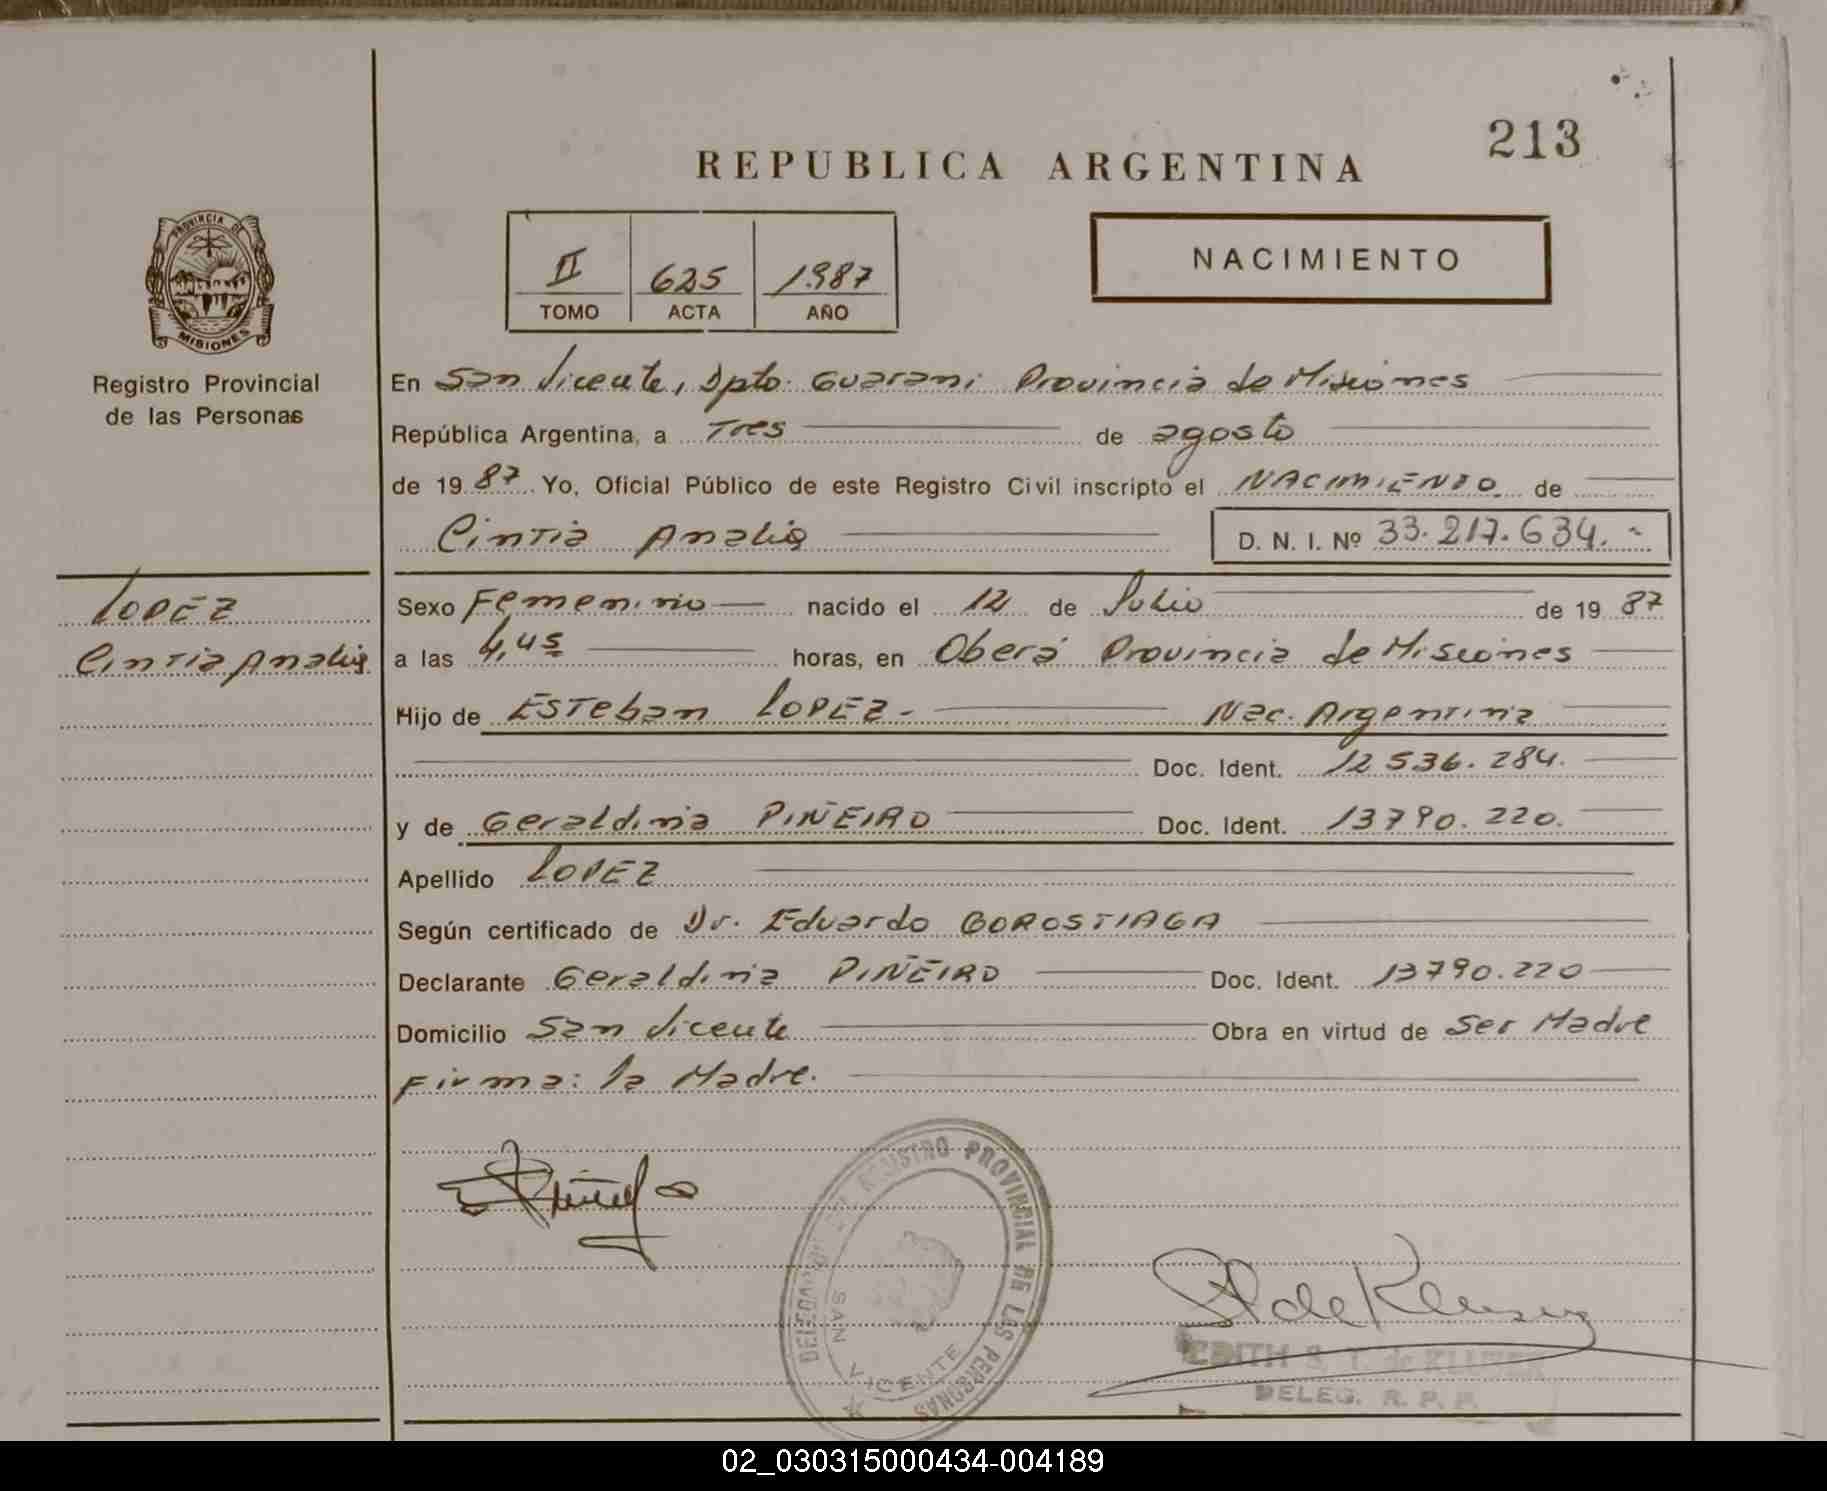 213
REPUBLICA ARGENTINA
PROVINCIA DE
MISIONES
Registro Provincial
de las Personas
II 625 1987
TOMO ACTA AÑO
NACIMIENTO
En San Vicente, Dpto. Guarani Provincia de Misiones
República Argentina, a Tres de agosto
de 1987 Yo, Oficial Público de este Registro Civil inscripto el NACIMIENTO de
Cintia Analia D. N. I. Nº 33.217.634.-
LOPEZ
Cintia Analia
Sexo Femenino nacido el 12 de Julio de 1987
a las 4,45 horas, en Oberá Provincia de Misiones
Hijo de Esteban LOPEZ- Nac. Argentina
Doc. Ident. 12536.284.
y de Geraldina PIÑEIRO Doc. Ident. 13790.220.
Apellido LOPEZ
Según certificado de Dr. Eduardo GOROSTIAGA
Declarante Geraldina PIÑEIRO Doc. Ident. 13790.220
Domicilio San Vicente Obra en virtud de Ser Madre
Firma: la Madre.
REGISTRO PROVINCIAL DE LAS PERSONAS
SAN VICENTE
EDITH S. T. de
DELEG. R. P. P.
02_030315000434-004189